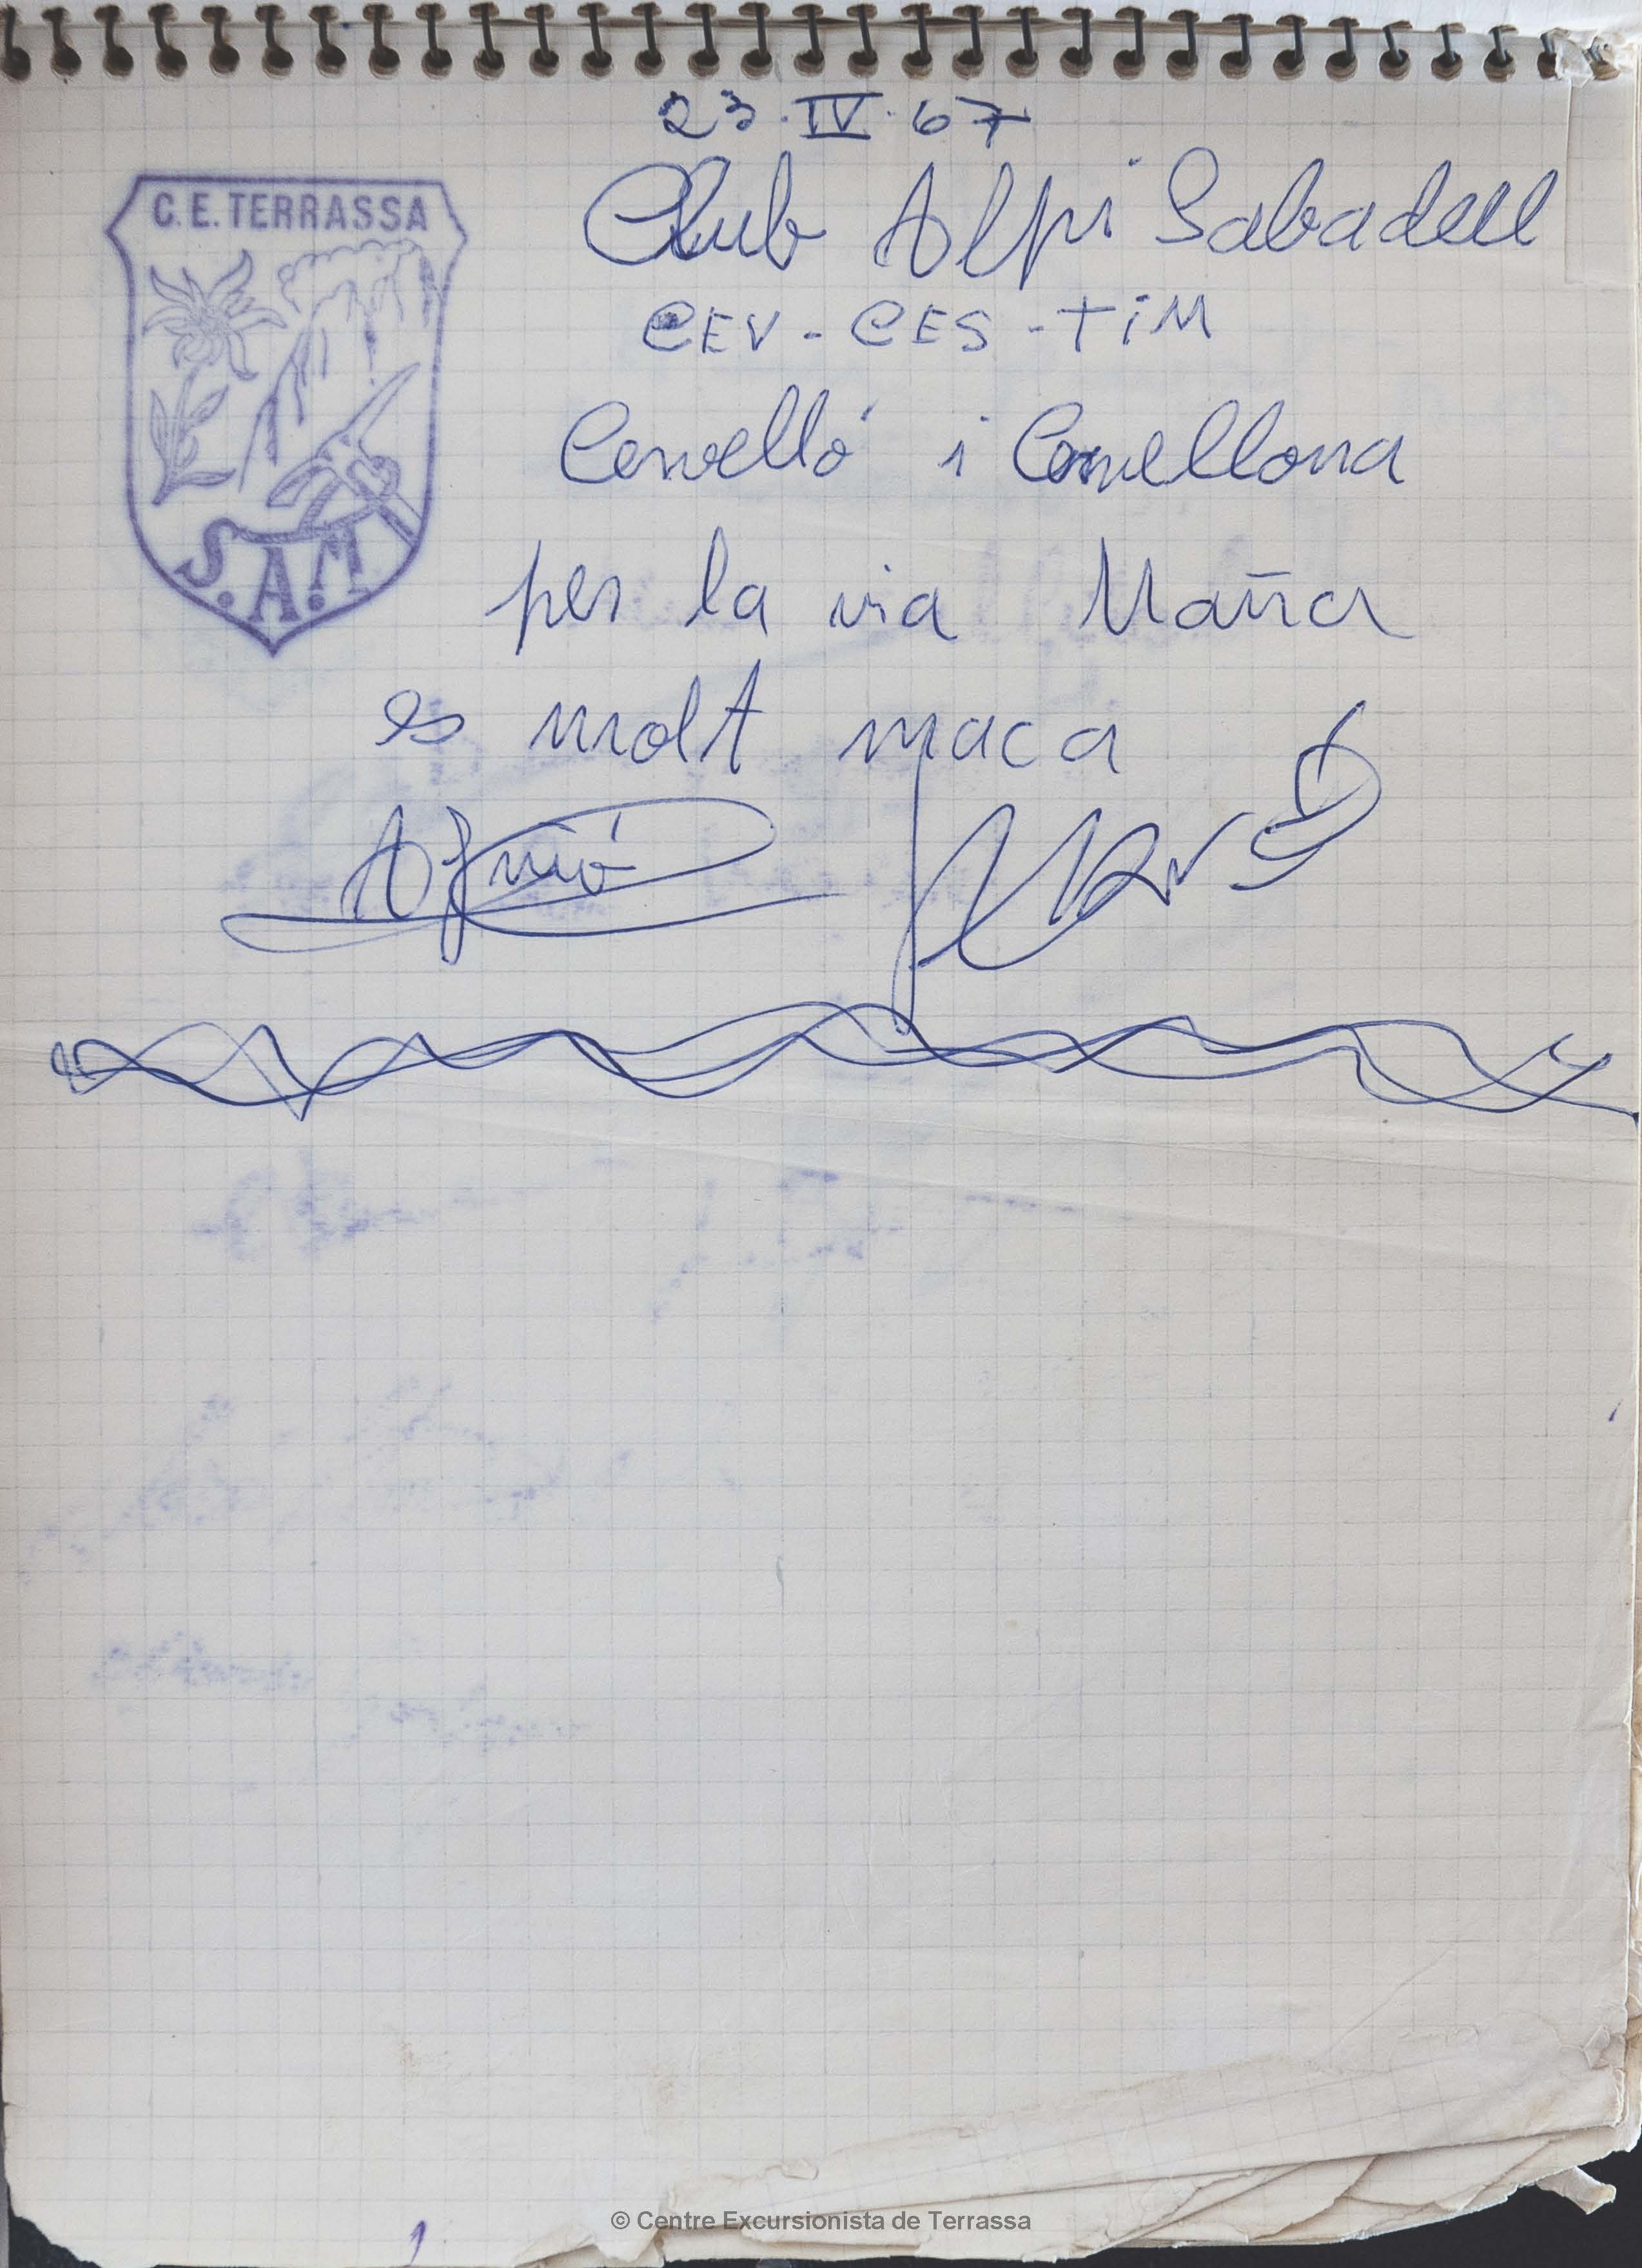 23·IV·67
C.E. TERRASSA
S.A.M.
Club Alpi Sabadell
CEV - CES - TiM
i
per la via Maña
es molt maca
© Centre Excursionista de Terrassa